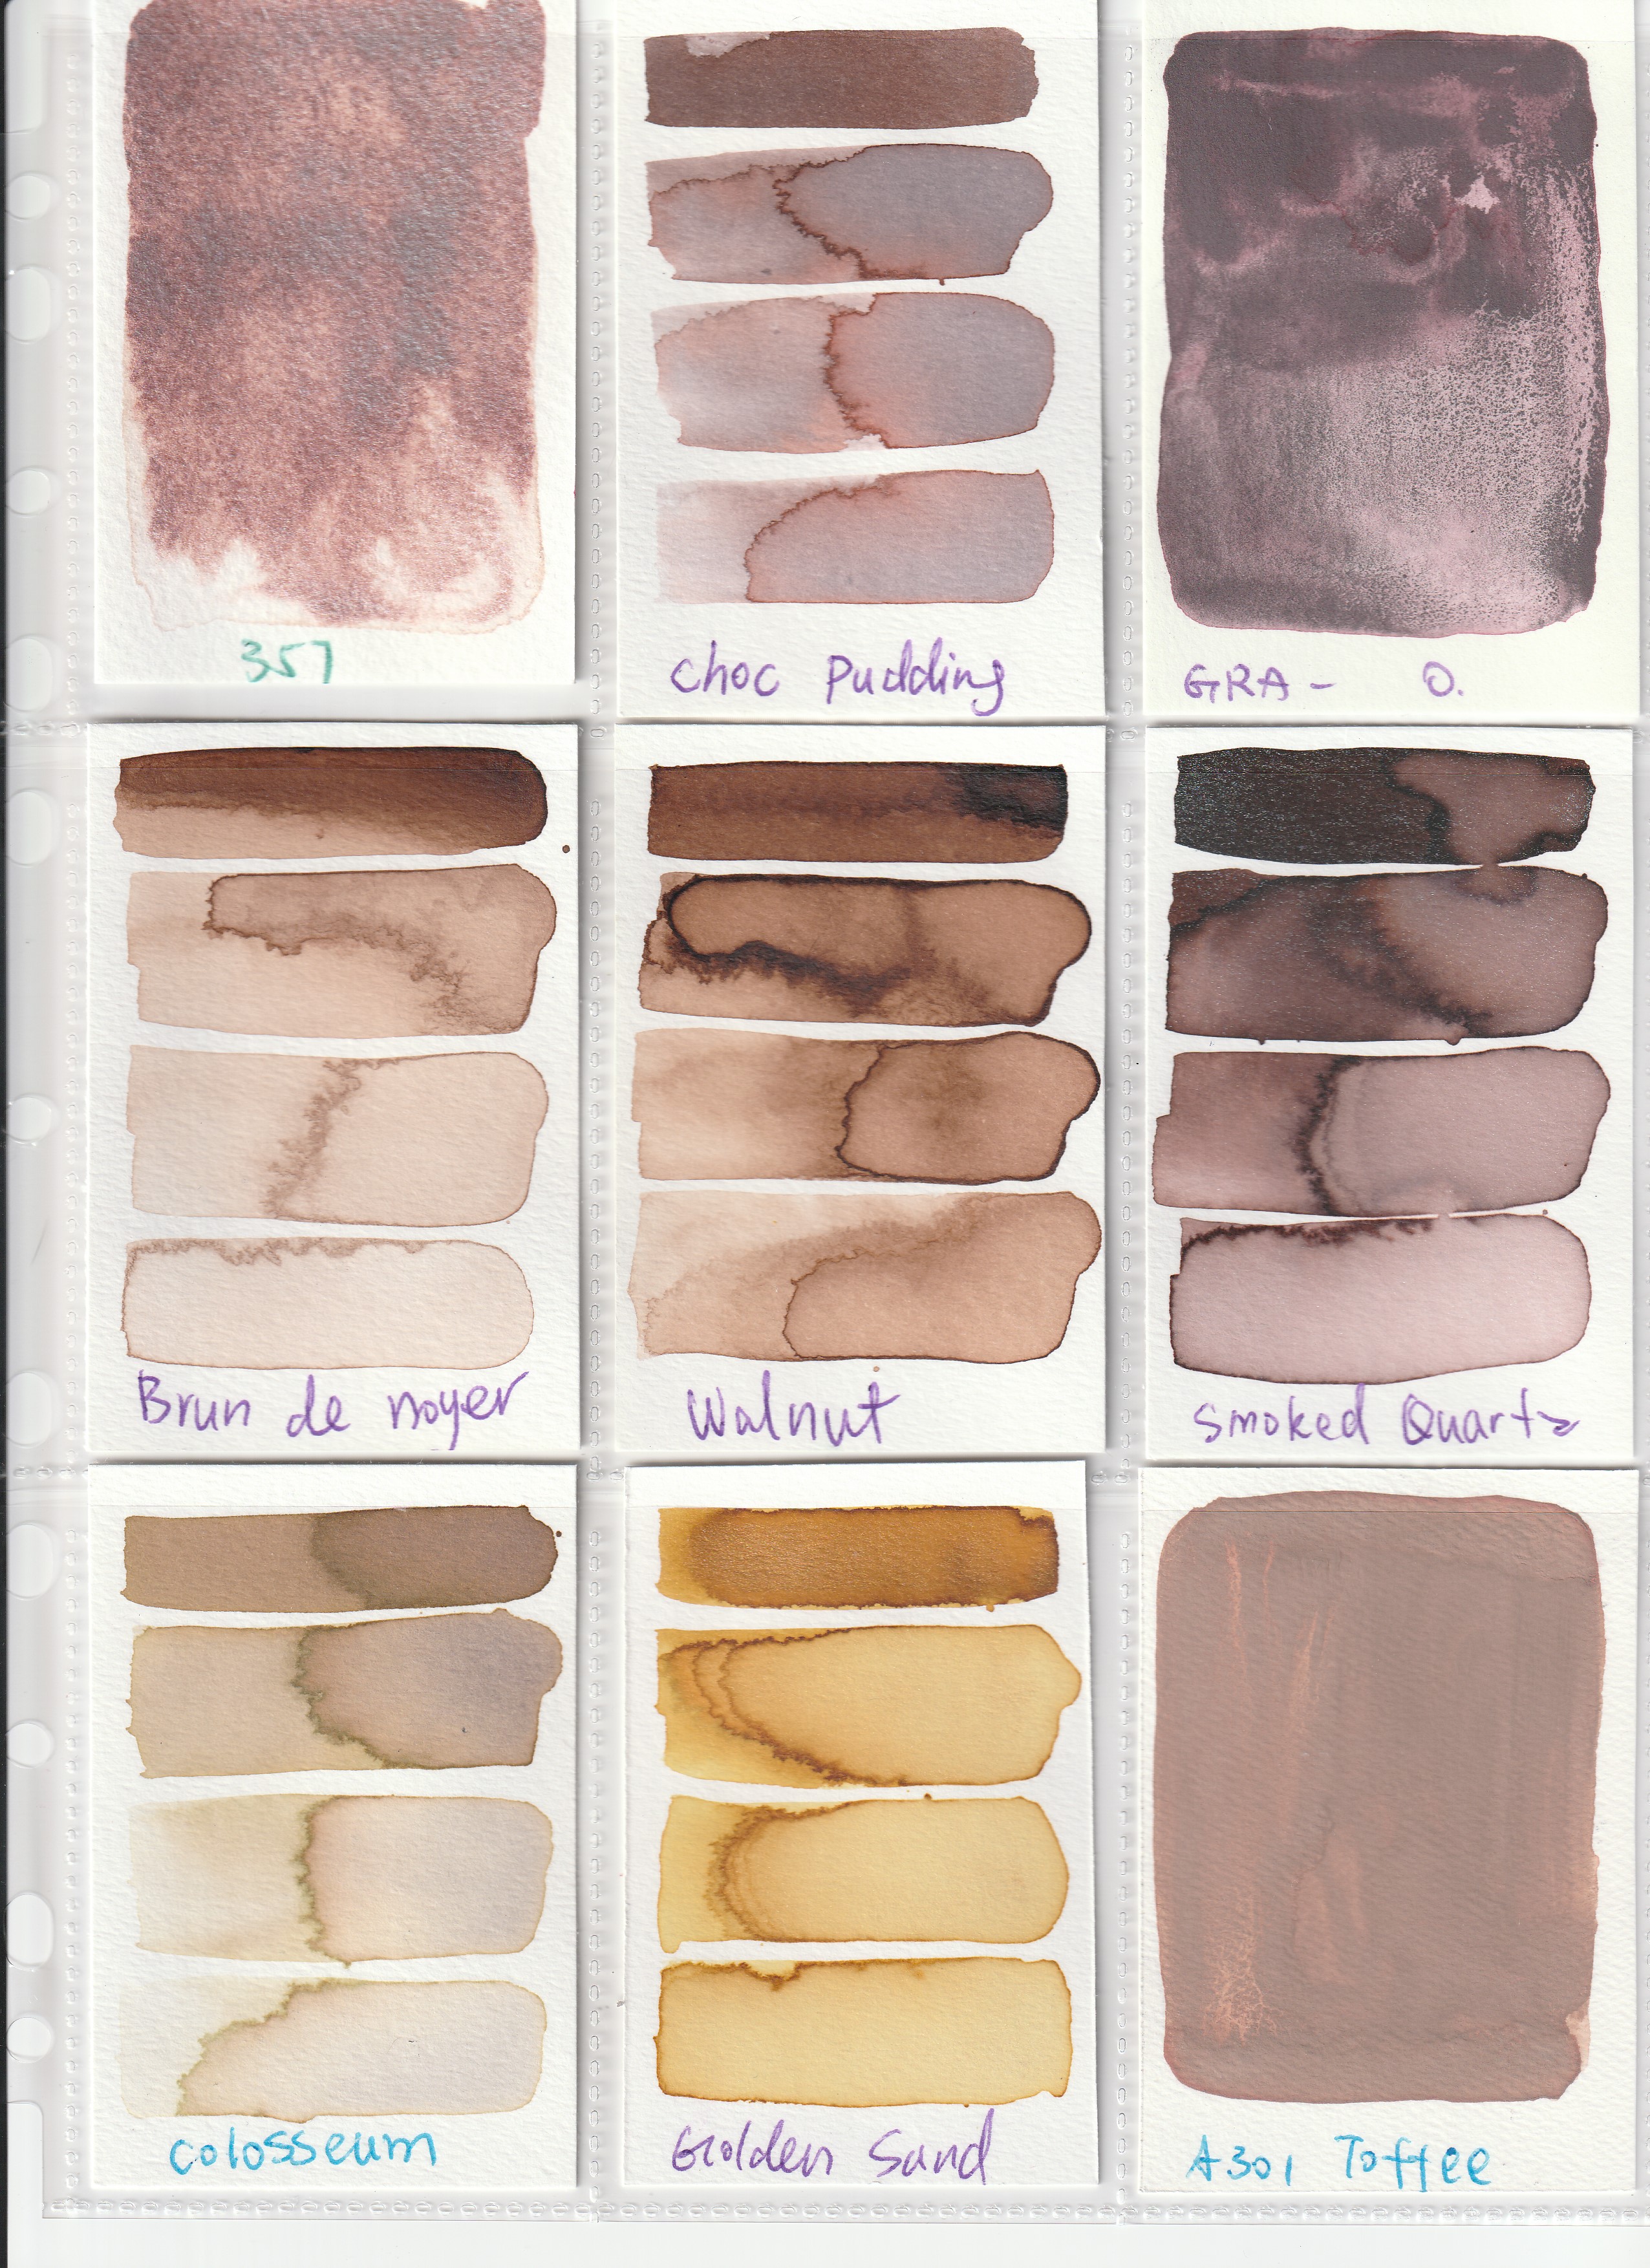 357
choc pudding
GRA- O.
Brun de noyer
Walnut
Smoked Quartz
Colosseum
Golden Sand
A301 Toffee